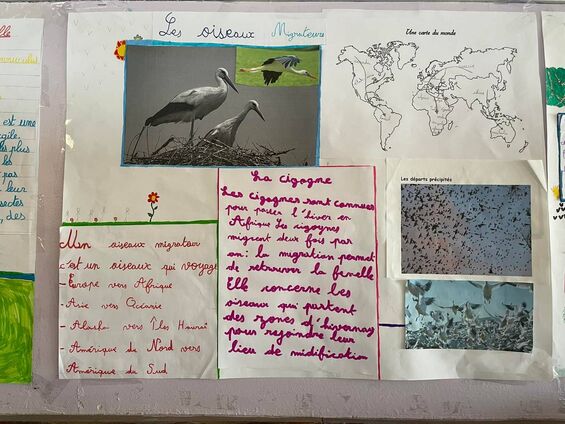 lle
est une
agile
les plus
les
pas
leur
des
Les oiseaux Migrateurs
Une carte du monde
La cigogne
Les cigognes sont connues
pour passer l'hiver en
Afrique Les cigognes
migrent deux fois par
an: la migration permet
de retrouver la femelle
Elle concerne les
oiseaux qui partent
des zones d'hivernage
pour rejoindre leur
lieu de midification
Un oiseaux migrateur
c'est un oiseaux qui voyage
- Europe vers Afrique
- Asie vers Océanie
- Alaska vers Îles Hawaï
- Amérique du Nord vers
Amérique du Sud
Les départs précipités